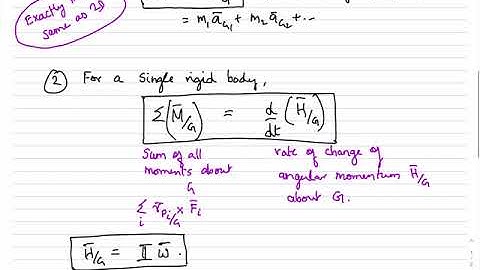 Exactly
same as 2D
= m₁ā_G₁ + m₂ā_G₂ + ...
② For a single rigid body,
Σ(M̄/G) = d/dt (H̄/G)
Sum of all moments about G
rate of change of angular momentum H̄/G about G.
Σ_i r̄_Pi/G × F̄_i
H̄/G = 𝕀 ω̄.